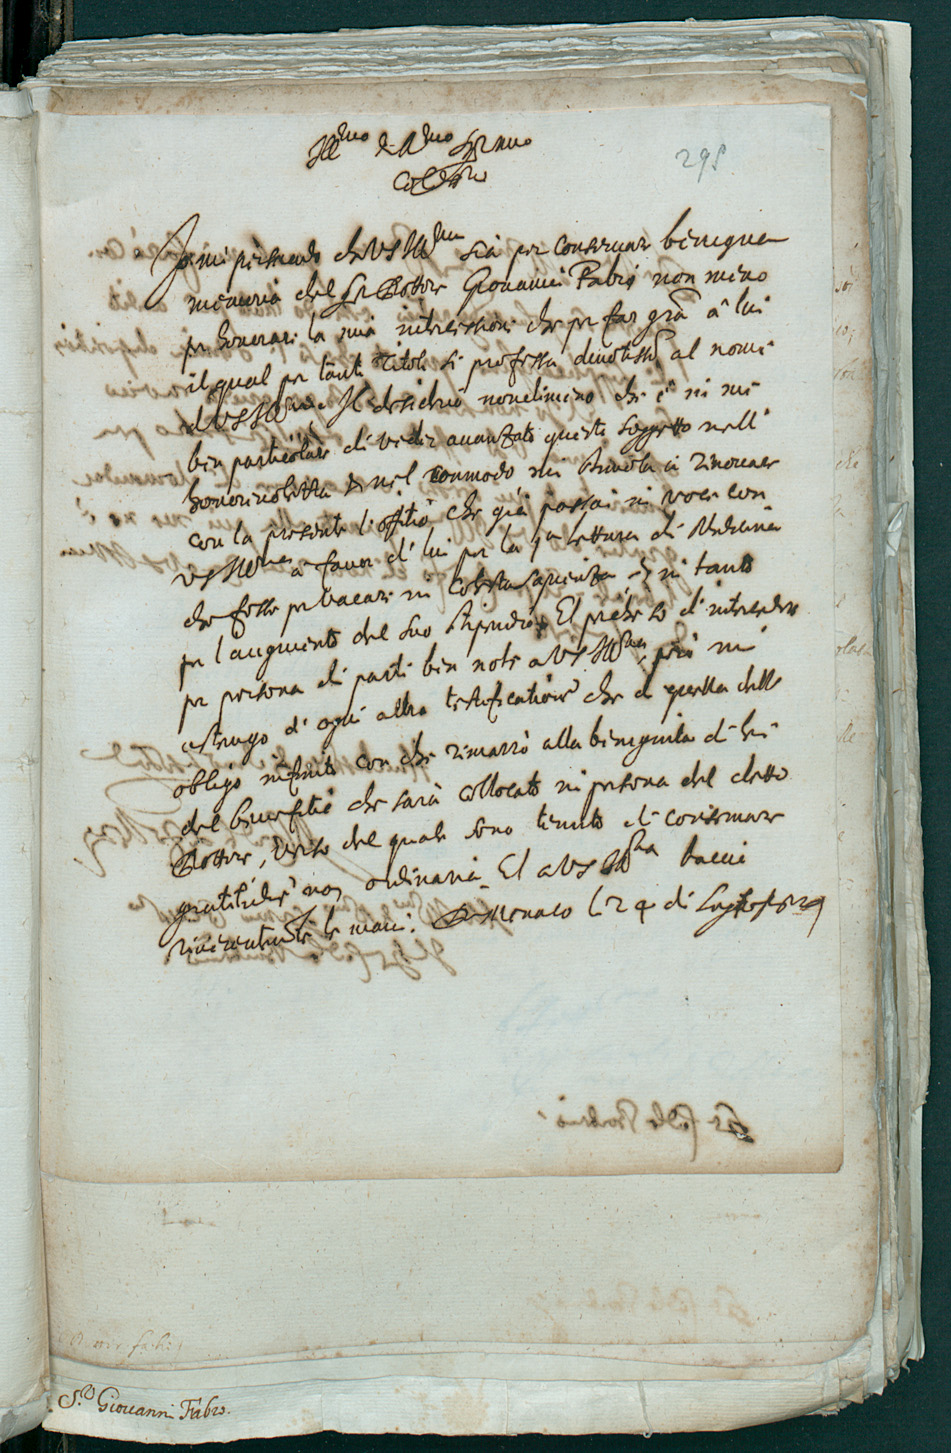 Ill.mo & R.mo Sig.r mio
Col.mo
295
Io mi persuado ch VS Ill.ma sia per conservar benigna
memoria del Sr Dottor Giovanni Fabri non meno
per honorare la mia intercessione che per far gra à lui
il qual per tanti Titoli si professa divotiss.o al nome
di VS Ill.ma. Il desiderio nondimeno che è in me
ben particolare di veder avanzato questo soggetto nell'
honorevolezza & nel commodo mi a rinovar
con la presente l'offitio che già passai in voce con
VS Ill.ma a favor di lui per la p.a lettura di Medicina
che fosse per vacare in cotesta sapienza, & in tanto
per l'augmento del suo stipendio. Et perche so d'intercedere
per persona di parti ben note a VS Ill.ma, però mi
astengo d'ogni altra testificatione che di quella dell'
obligo infinito con che rimarrò alla benignita di lei
del beneficio che sarà collocato in persona del detto
Dottor, verso del quale sono tenuto di conservare
gratitudine non ordinaria. Et a VS Ill.ma bacio
riverentem.te le mani. Di Monaco li 24 di
S.r Giovanni Fabro.